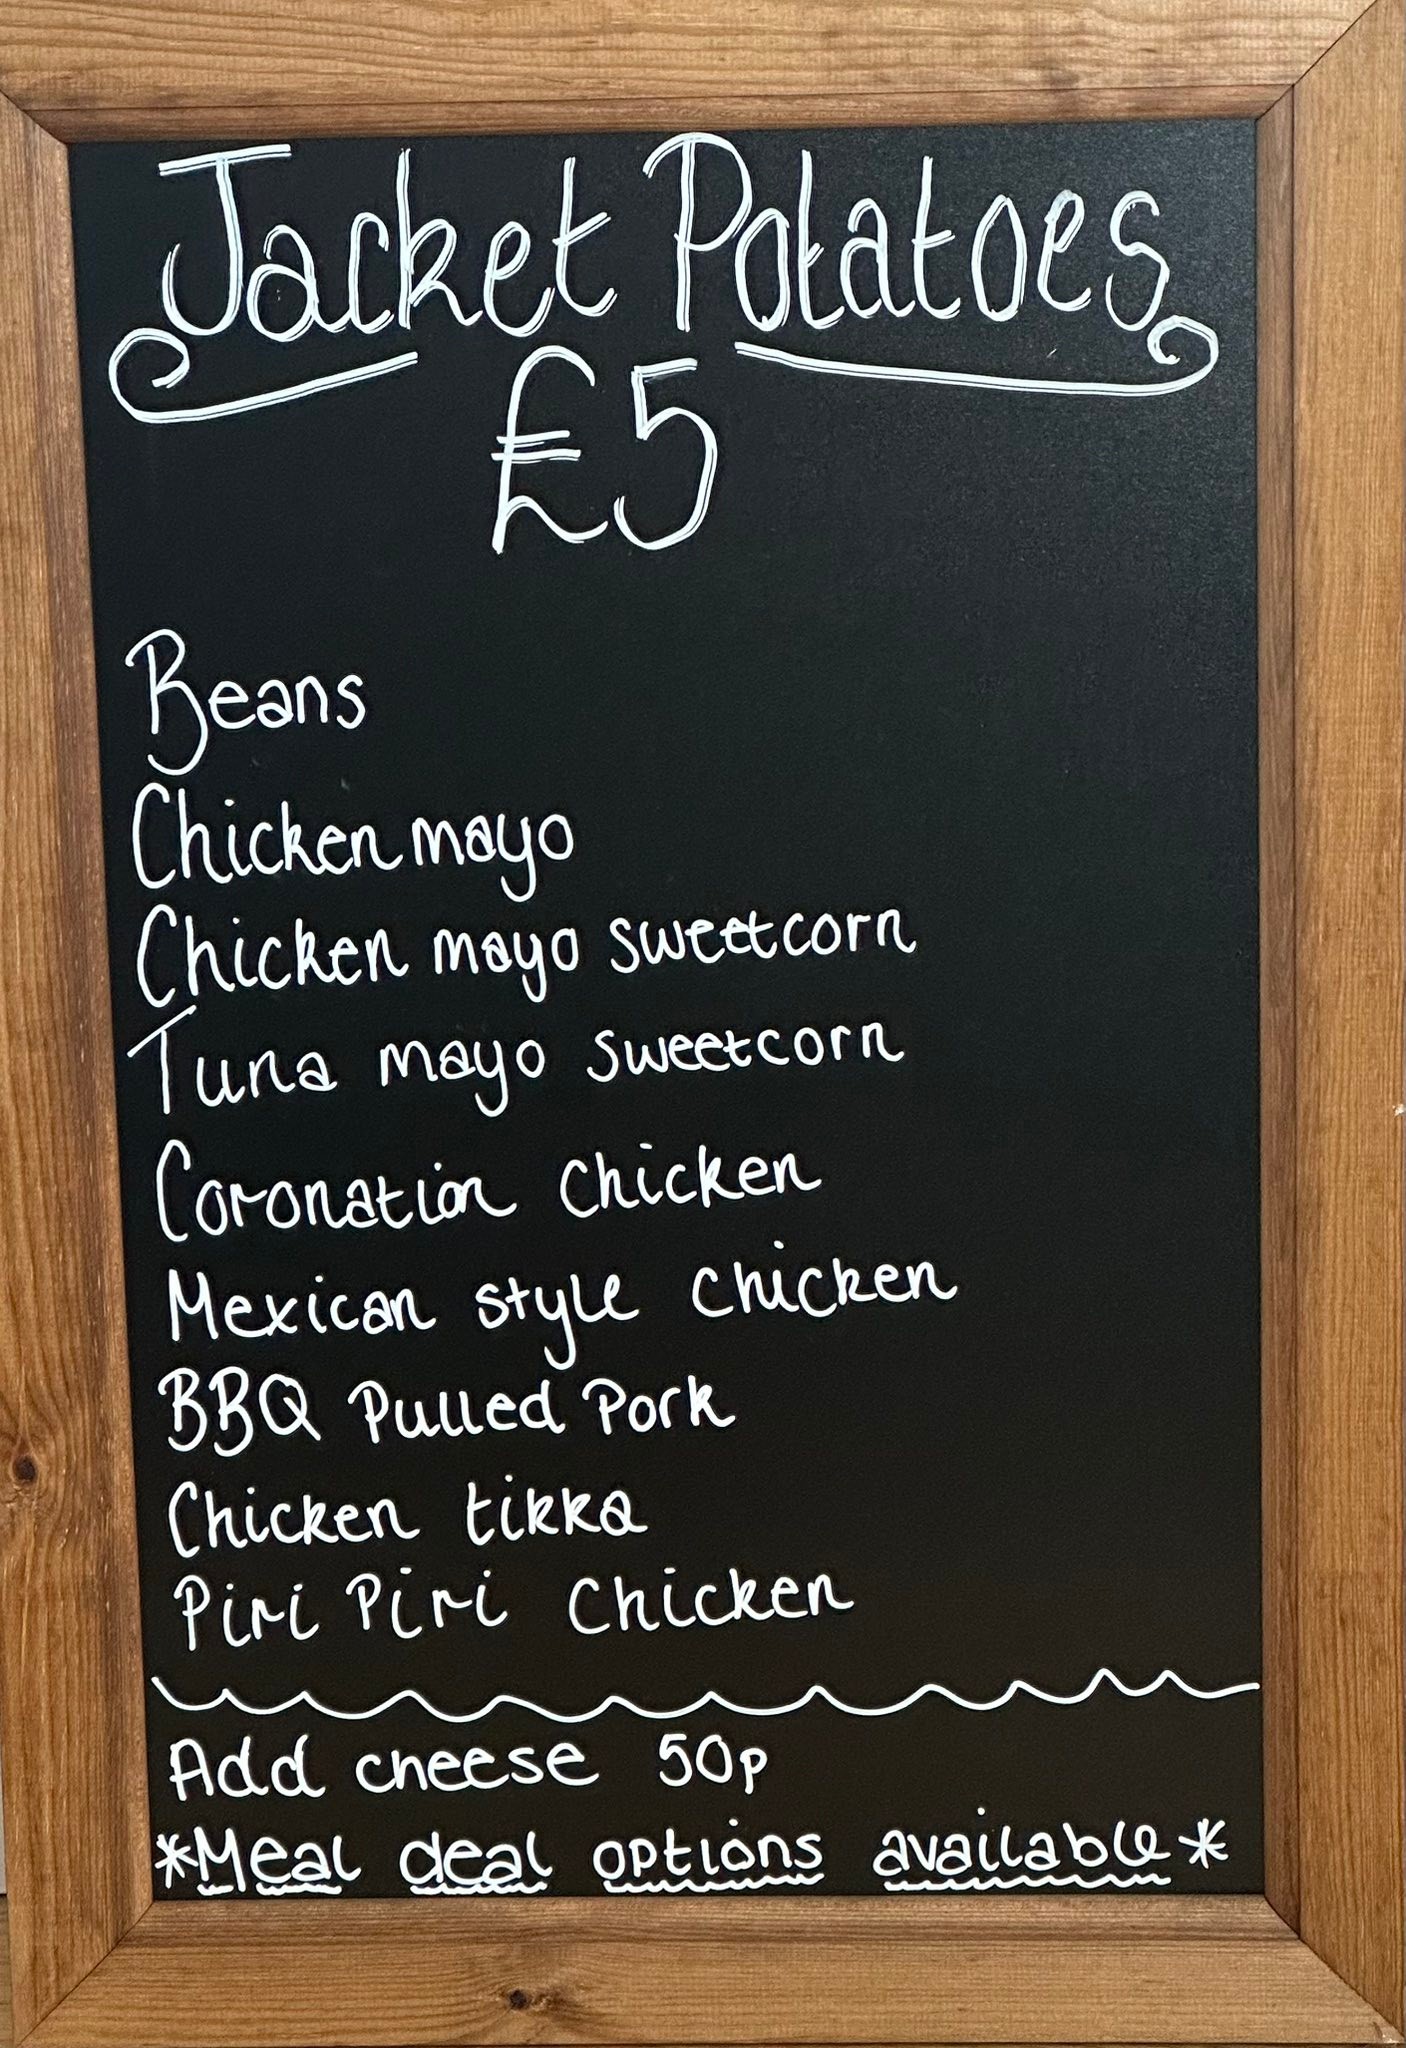 Jacket Potatoes
£5
Beans
Chicken mayo
Chicken mayo sweetcorn
Tuna mayo sweetcorn
Coronation chicken
Mexican style chicken
BBQ Pulled Pork
Chicken tikka
Piri Piri Chicken
Add cheese 50p
*Meal deal options available*